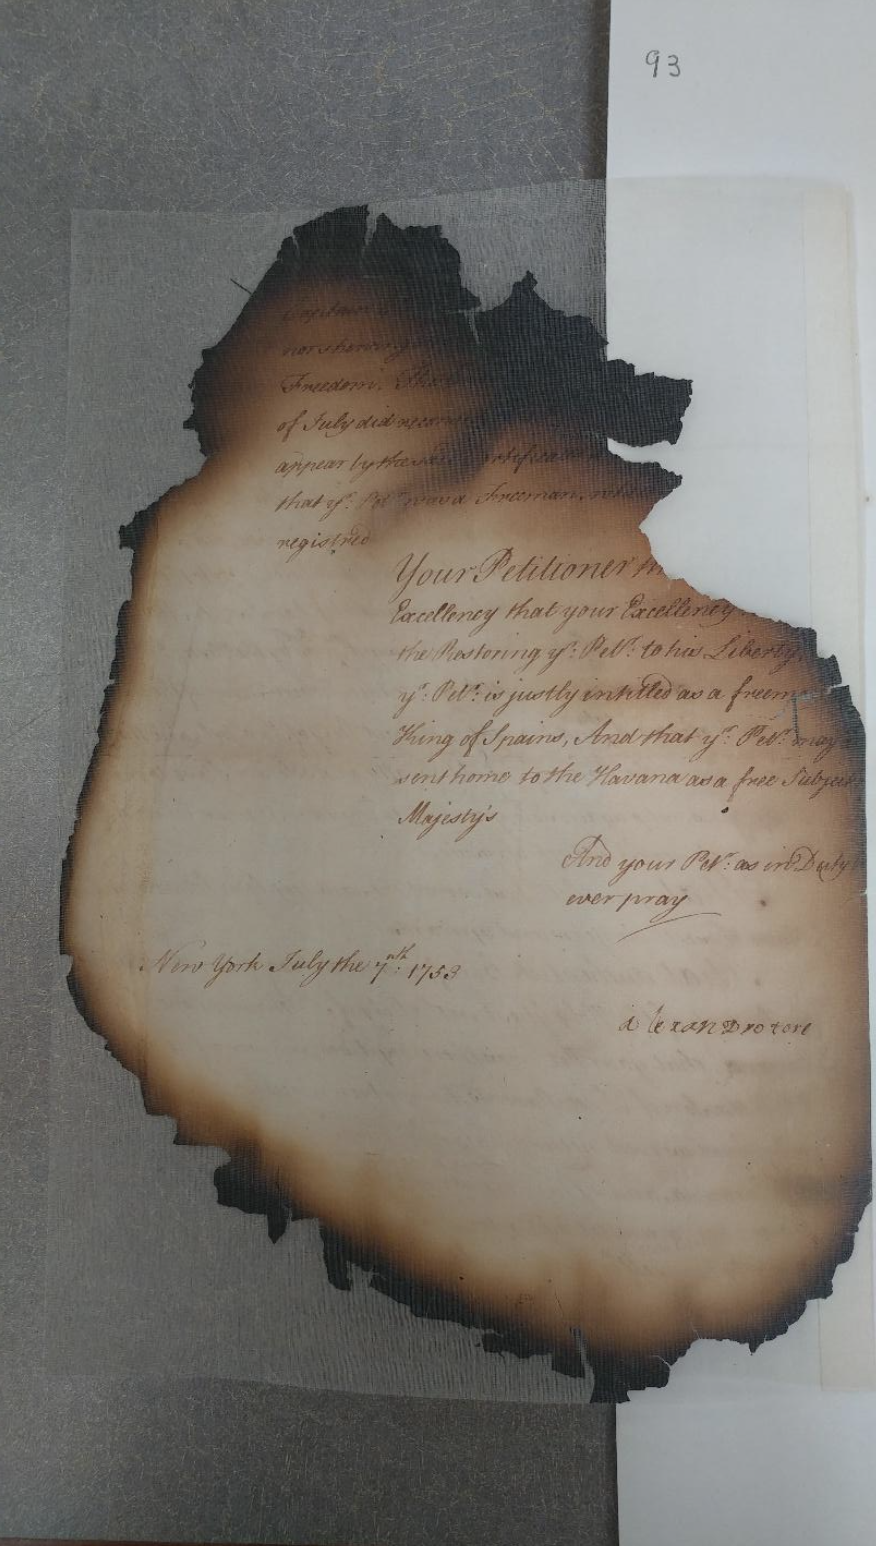 93
not shewing
Freedom. That
of July did
appear by the said Certificate
that yr. Petr. was a Freeman,
registred
Your Petitioner
Excellency that your Excellency
the Restoring yr. Petr. to his Liberty,
yr. Petr. is justly intitled as a freem
King of Spains, And that yr. Petr. may
sent home to the Havana as a free Subject
Majesty's
And your Petr. as in Duty
ever pray
New York July the 7th. 1753
alexandro tore